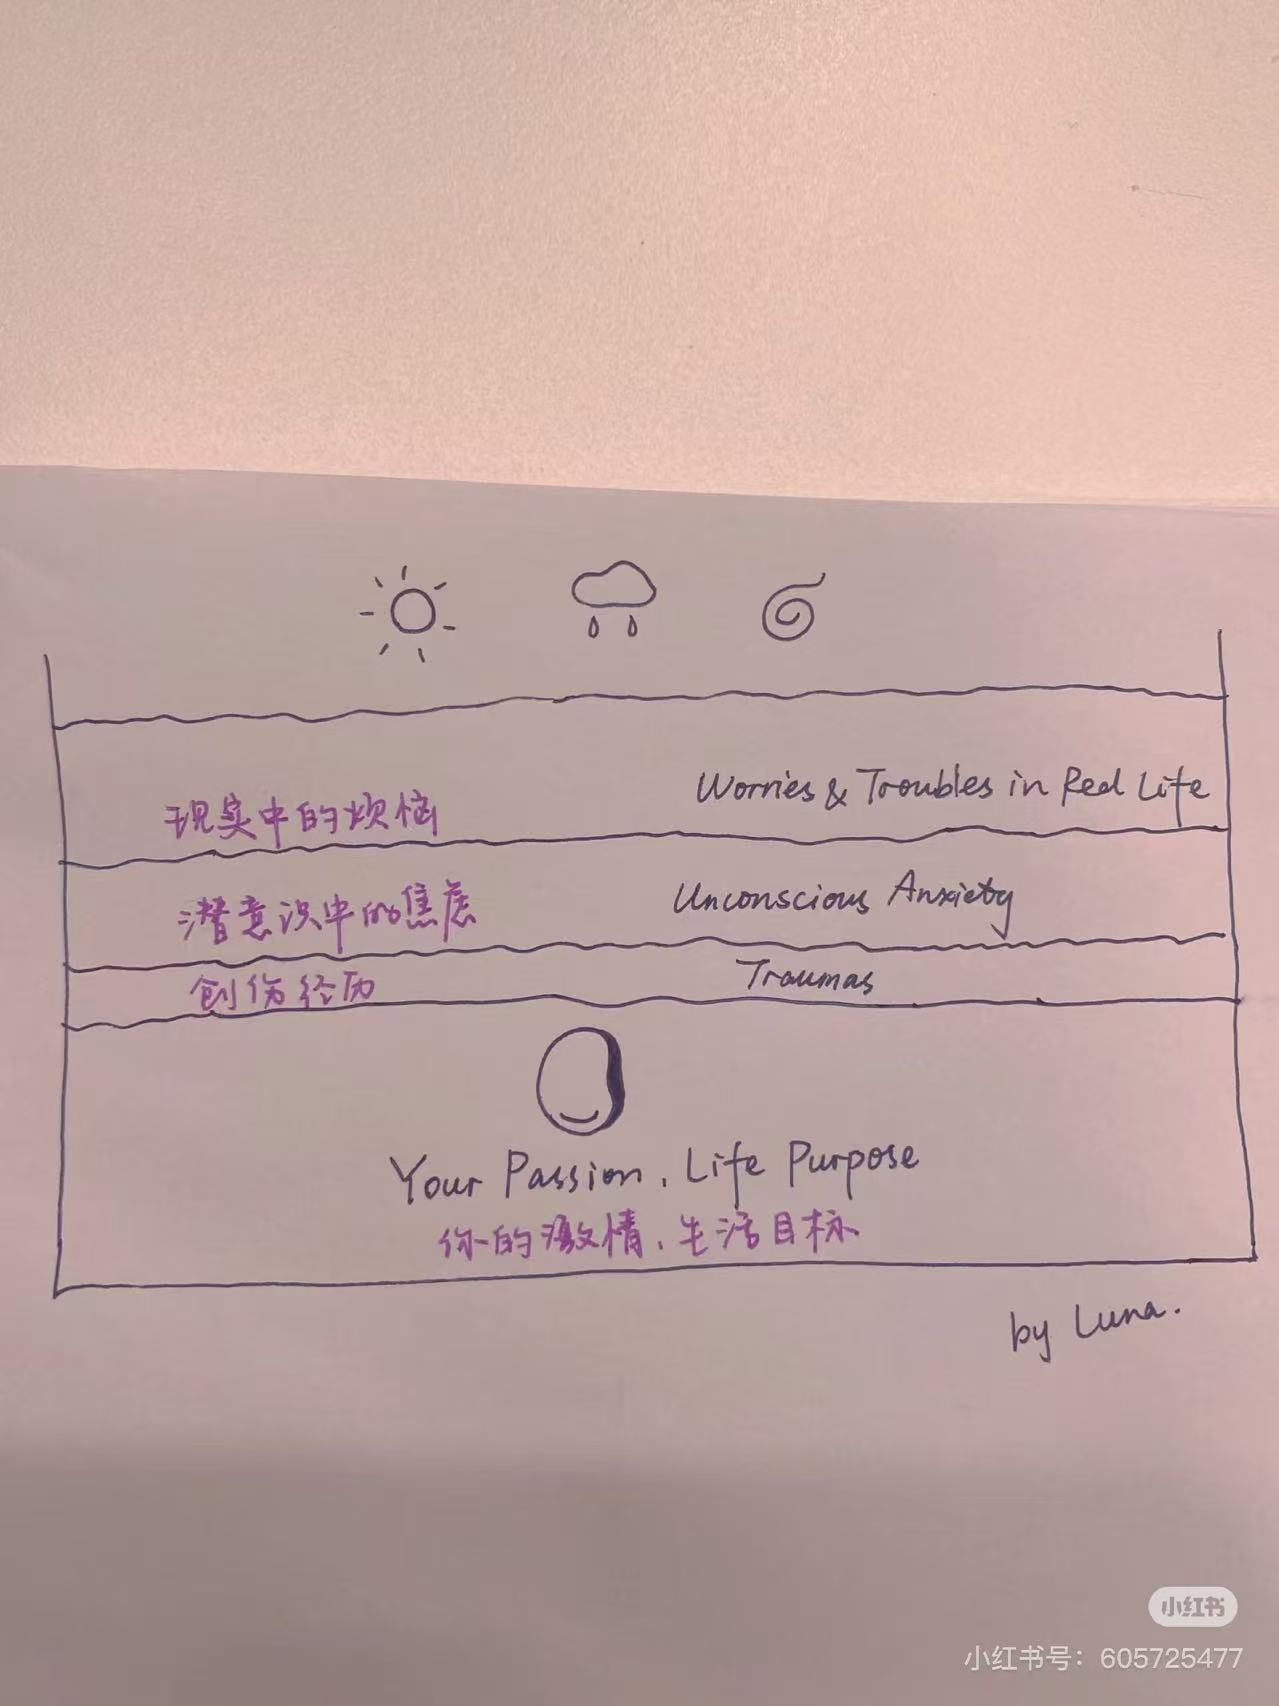 现实中的烦恼 Worries & Troubles in Real Life
潜意识中的焦虑 Unconscious Anxiety
创伤经历 Traumas
Your Passion, Life Purpose
你的激情、生活目标
by Luna.
小红书
小红书号：605725477